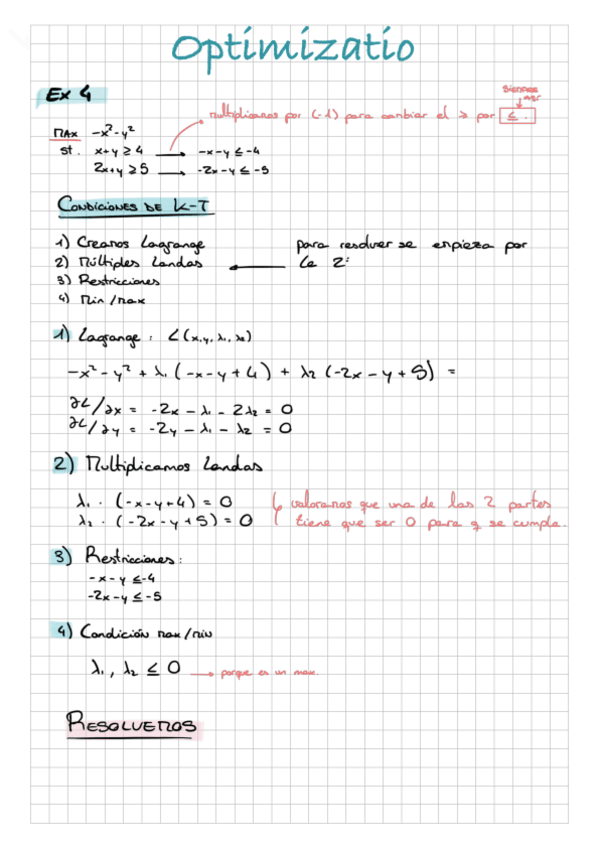 Optimizatio
Ex 4
siempre
asi
multiplicamos por (-1) para cambiar el ≥ por ≤.
Max -x²-y²
st. x+y ≥ 4 → -x-y ≤ -4
2x+y ≥ 5 → -2x-y ≤ -5
CONDICIONES DE K-T
1) Creamos Lagrange
2) Múltiples landas
3) Restricciones
4) Min/max
para resolver se empieza por
la 2ª
1) Lagrange: L(x,y, λ₁, λ₂)
-x² - y² + λ₁(-x-y+4) + λ2(-2x-y+5) =
∂L/∂x = -2x - λ₁ - 2λ2 = 0
∂L/∂y = -2y - λ₁ - λ2 = 0
2) Multiplicamos landas
λ₁ · (-x-y+4) = 0
λ2 · (-2x-y+5) = 0
valoramos que una de las 2 partes
tiene que ser 0 para q se cumpla.
3) Restricciones:
-x-y ≤ -4
-2x-y ≤ -5
4) Condición max/min
λ₁, λ2 ≤ 0 → porque es un max.
RESOLVEMOS